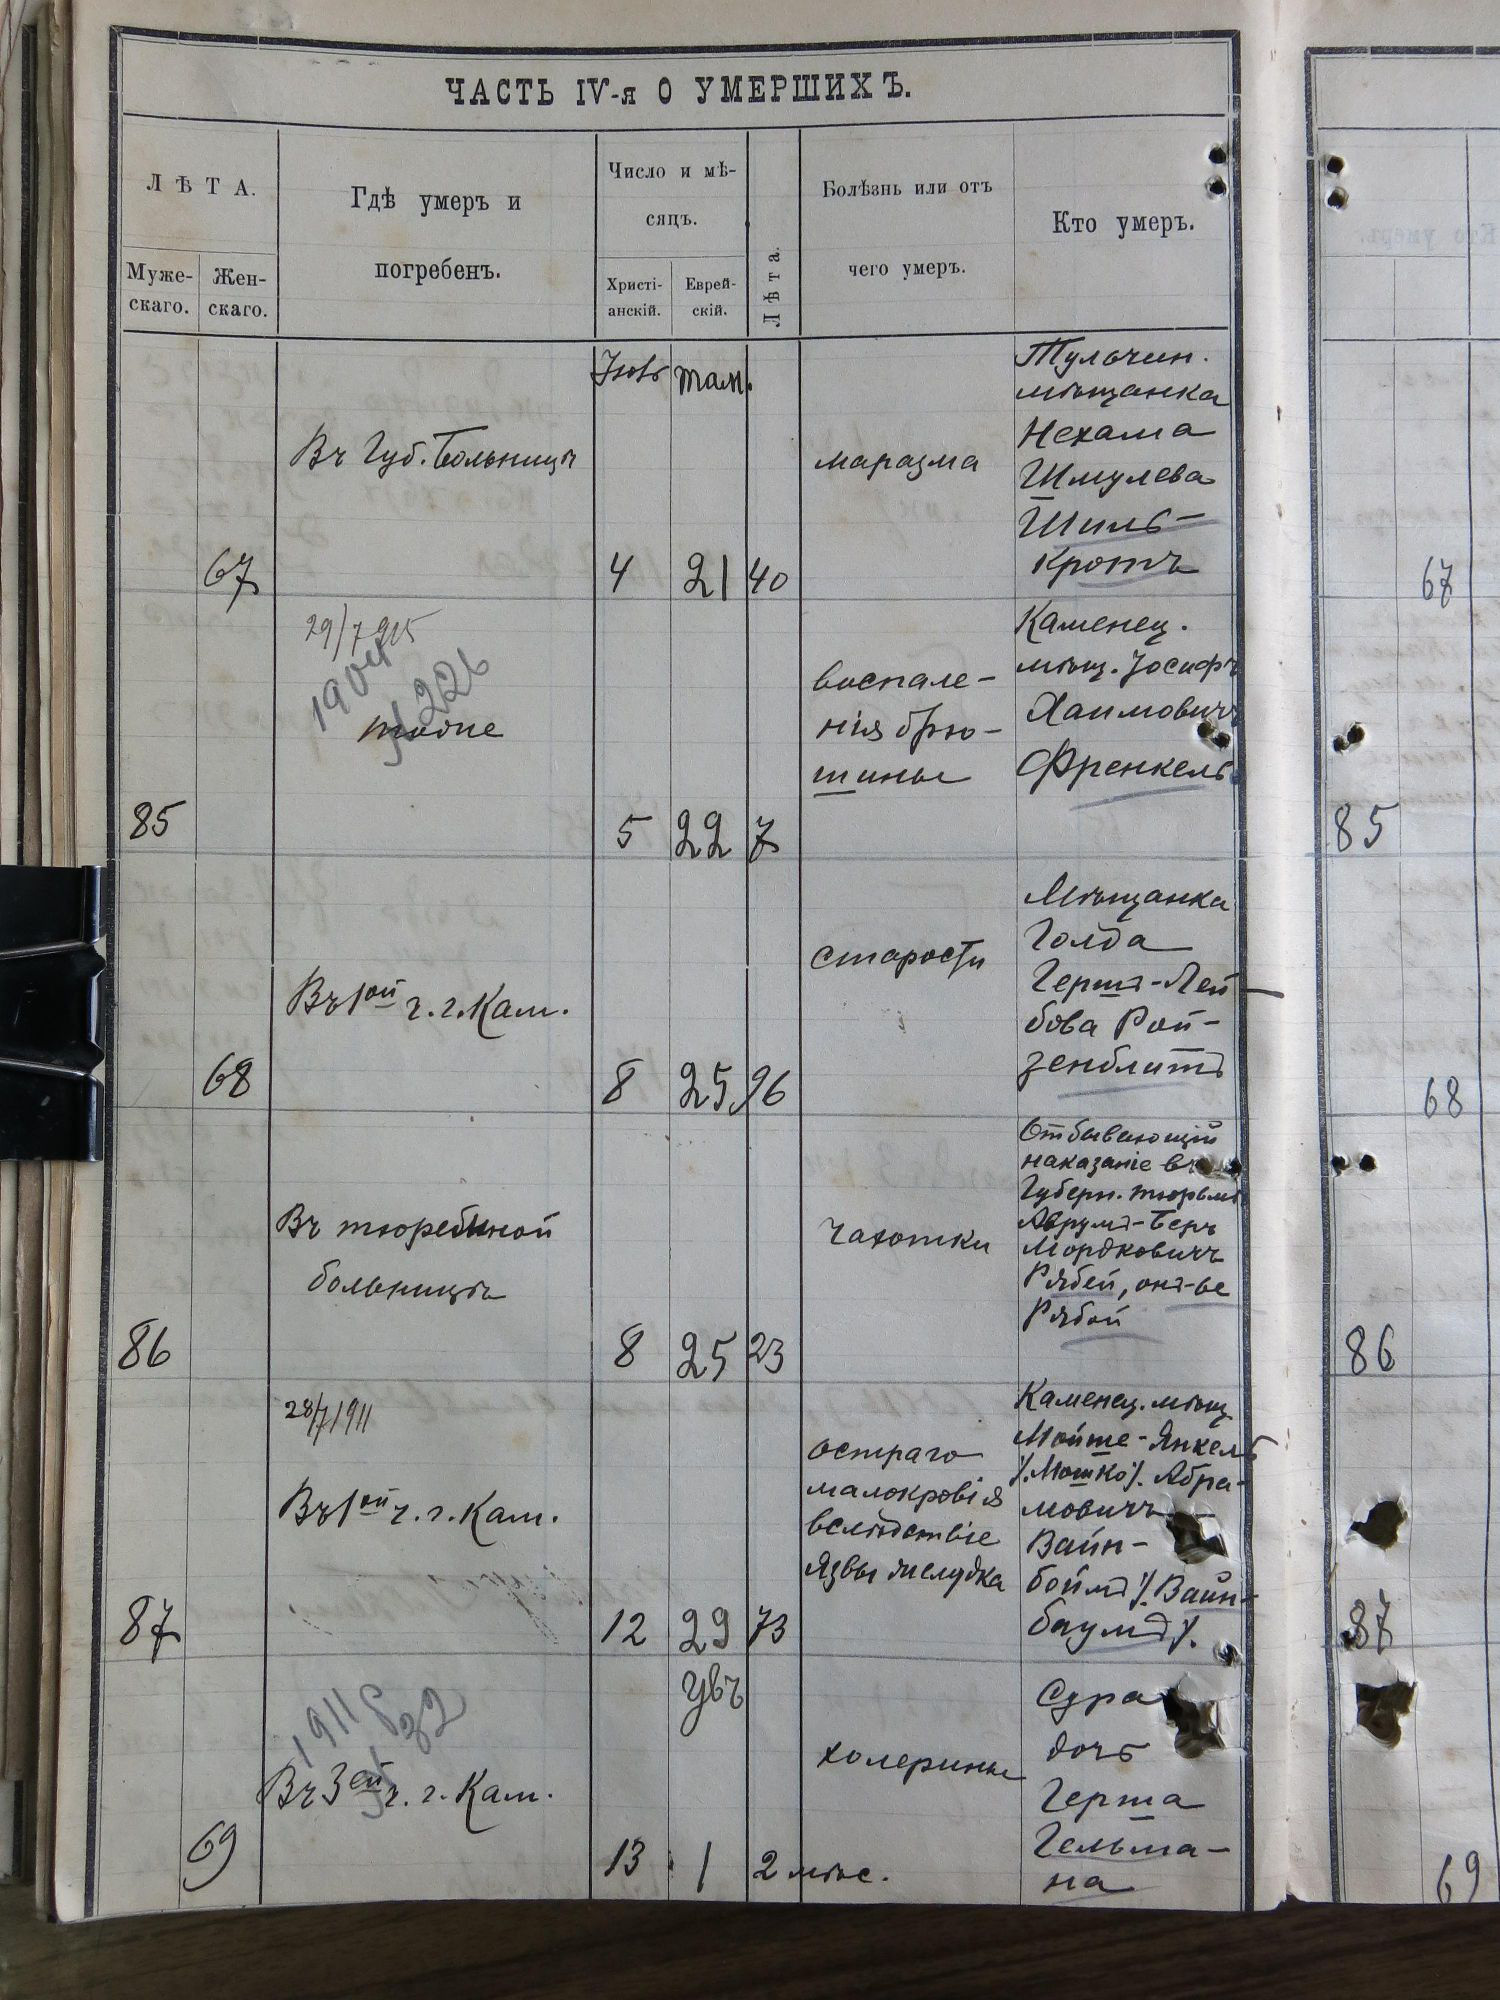 ЧАСТЬ IV-я О УМЕРШИХЪ.
ЛѢТА.
Муже-
скаго.
Жен-
скаго.
Гдѣ умеръ и
погребенъ.
Число и мѣ-
сяцъ.
Христі-
анскій.
Еврей-
скій.
Лѣта.
Болѣзнь или отъ
чего умеръ.
Кто умеръ.
67
Въ Губ. Больницѣ
Іюль
4
там.
21
40
маразма
Тульчин.
мѣщанка
Нехама
Шмулева
Шиль-
кротъ
67
85
29/7 915
1904
№ 226
тоже
5
22
7
воспале-
нія брю-
шины
Каменец.
мѣщ. Іосифъ
Хаимовичъ
Френкель
85
68
Въ 1ой ч. г. Кам.
8
25
96
старости
Мѣщанка
Голда
Гершъ-Лей-
бова Рой-
зенблитъ
68
86
Въ тюребнной
больницѣ
8
25
23
чахотки
Отбывающій
наказаніе въ
Губерн. тюрьмѣ
Аврумъ-Беръ
Мордковичъ
Рябей, онъ-же
Рябой
86
87
28/7 1911
Въ 1ой ч. г. Кам.
12
29
73
остраго
малокровія
вслѣдствіе
язвы желудка
Каменец. мѣщ.
Мойше-Янкель
/.Мошко/. Абра-
мовичъ
Вайн-
боймъ /.Вайн-
баумъ/.
87
69
1911
№ 832
Въ 3ей ч. г. Кам.
13
Увъ
1
2 мѣс.
холерины
Сура
дочь
Герша
Гельма-
на
69